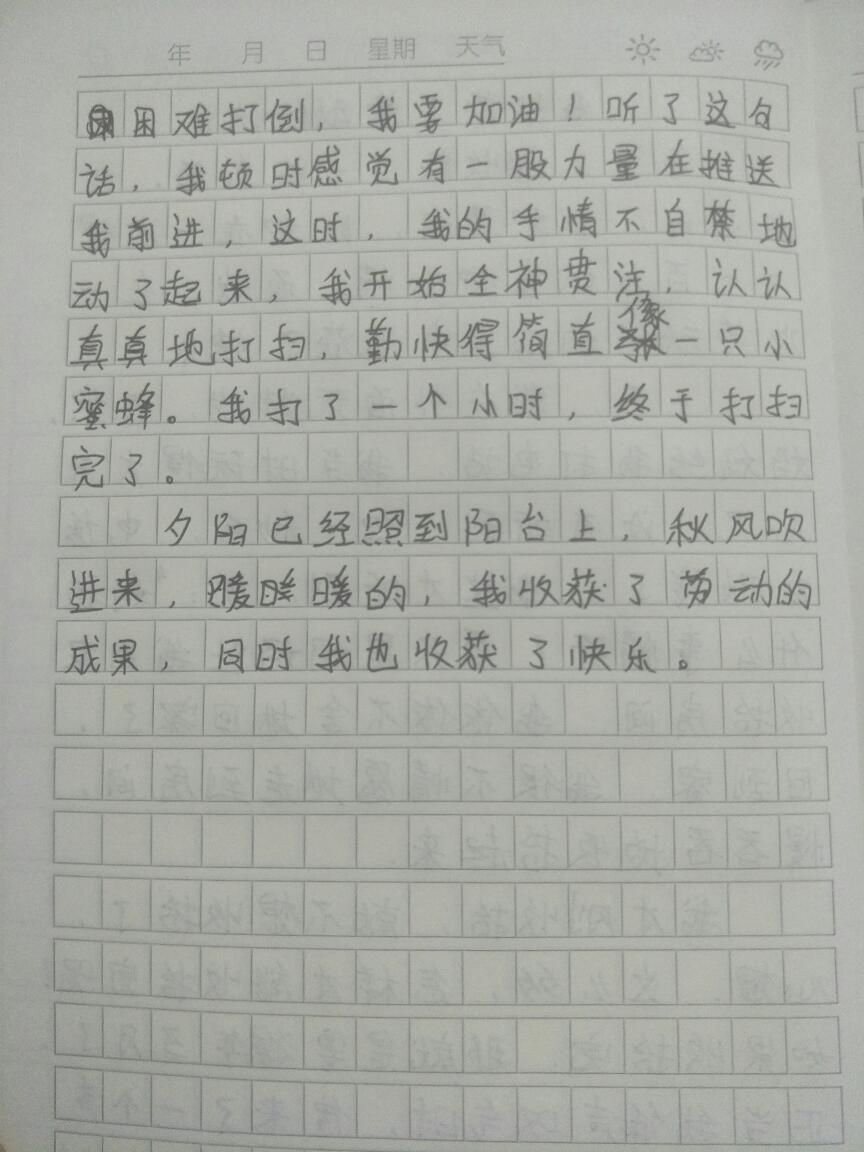 年 月 日 星期 天气
困难打倒，我要加油！听了这句
话，我顿时感觉有一股力量在推送
我前进，这时，我的手情不自禁地
动了起来，我开始全神贯注，认认
真真地打扫，勤快得简直像一只小
蜜蜂。我打了一个小时，终于打扫
完了。
夕阳已经照到阳台上，秋风吹
进来，暖暖暖的，我收获了劳动的
成果，同时我也收获了快乐。